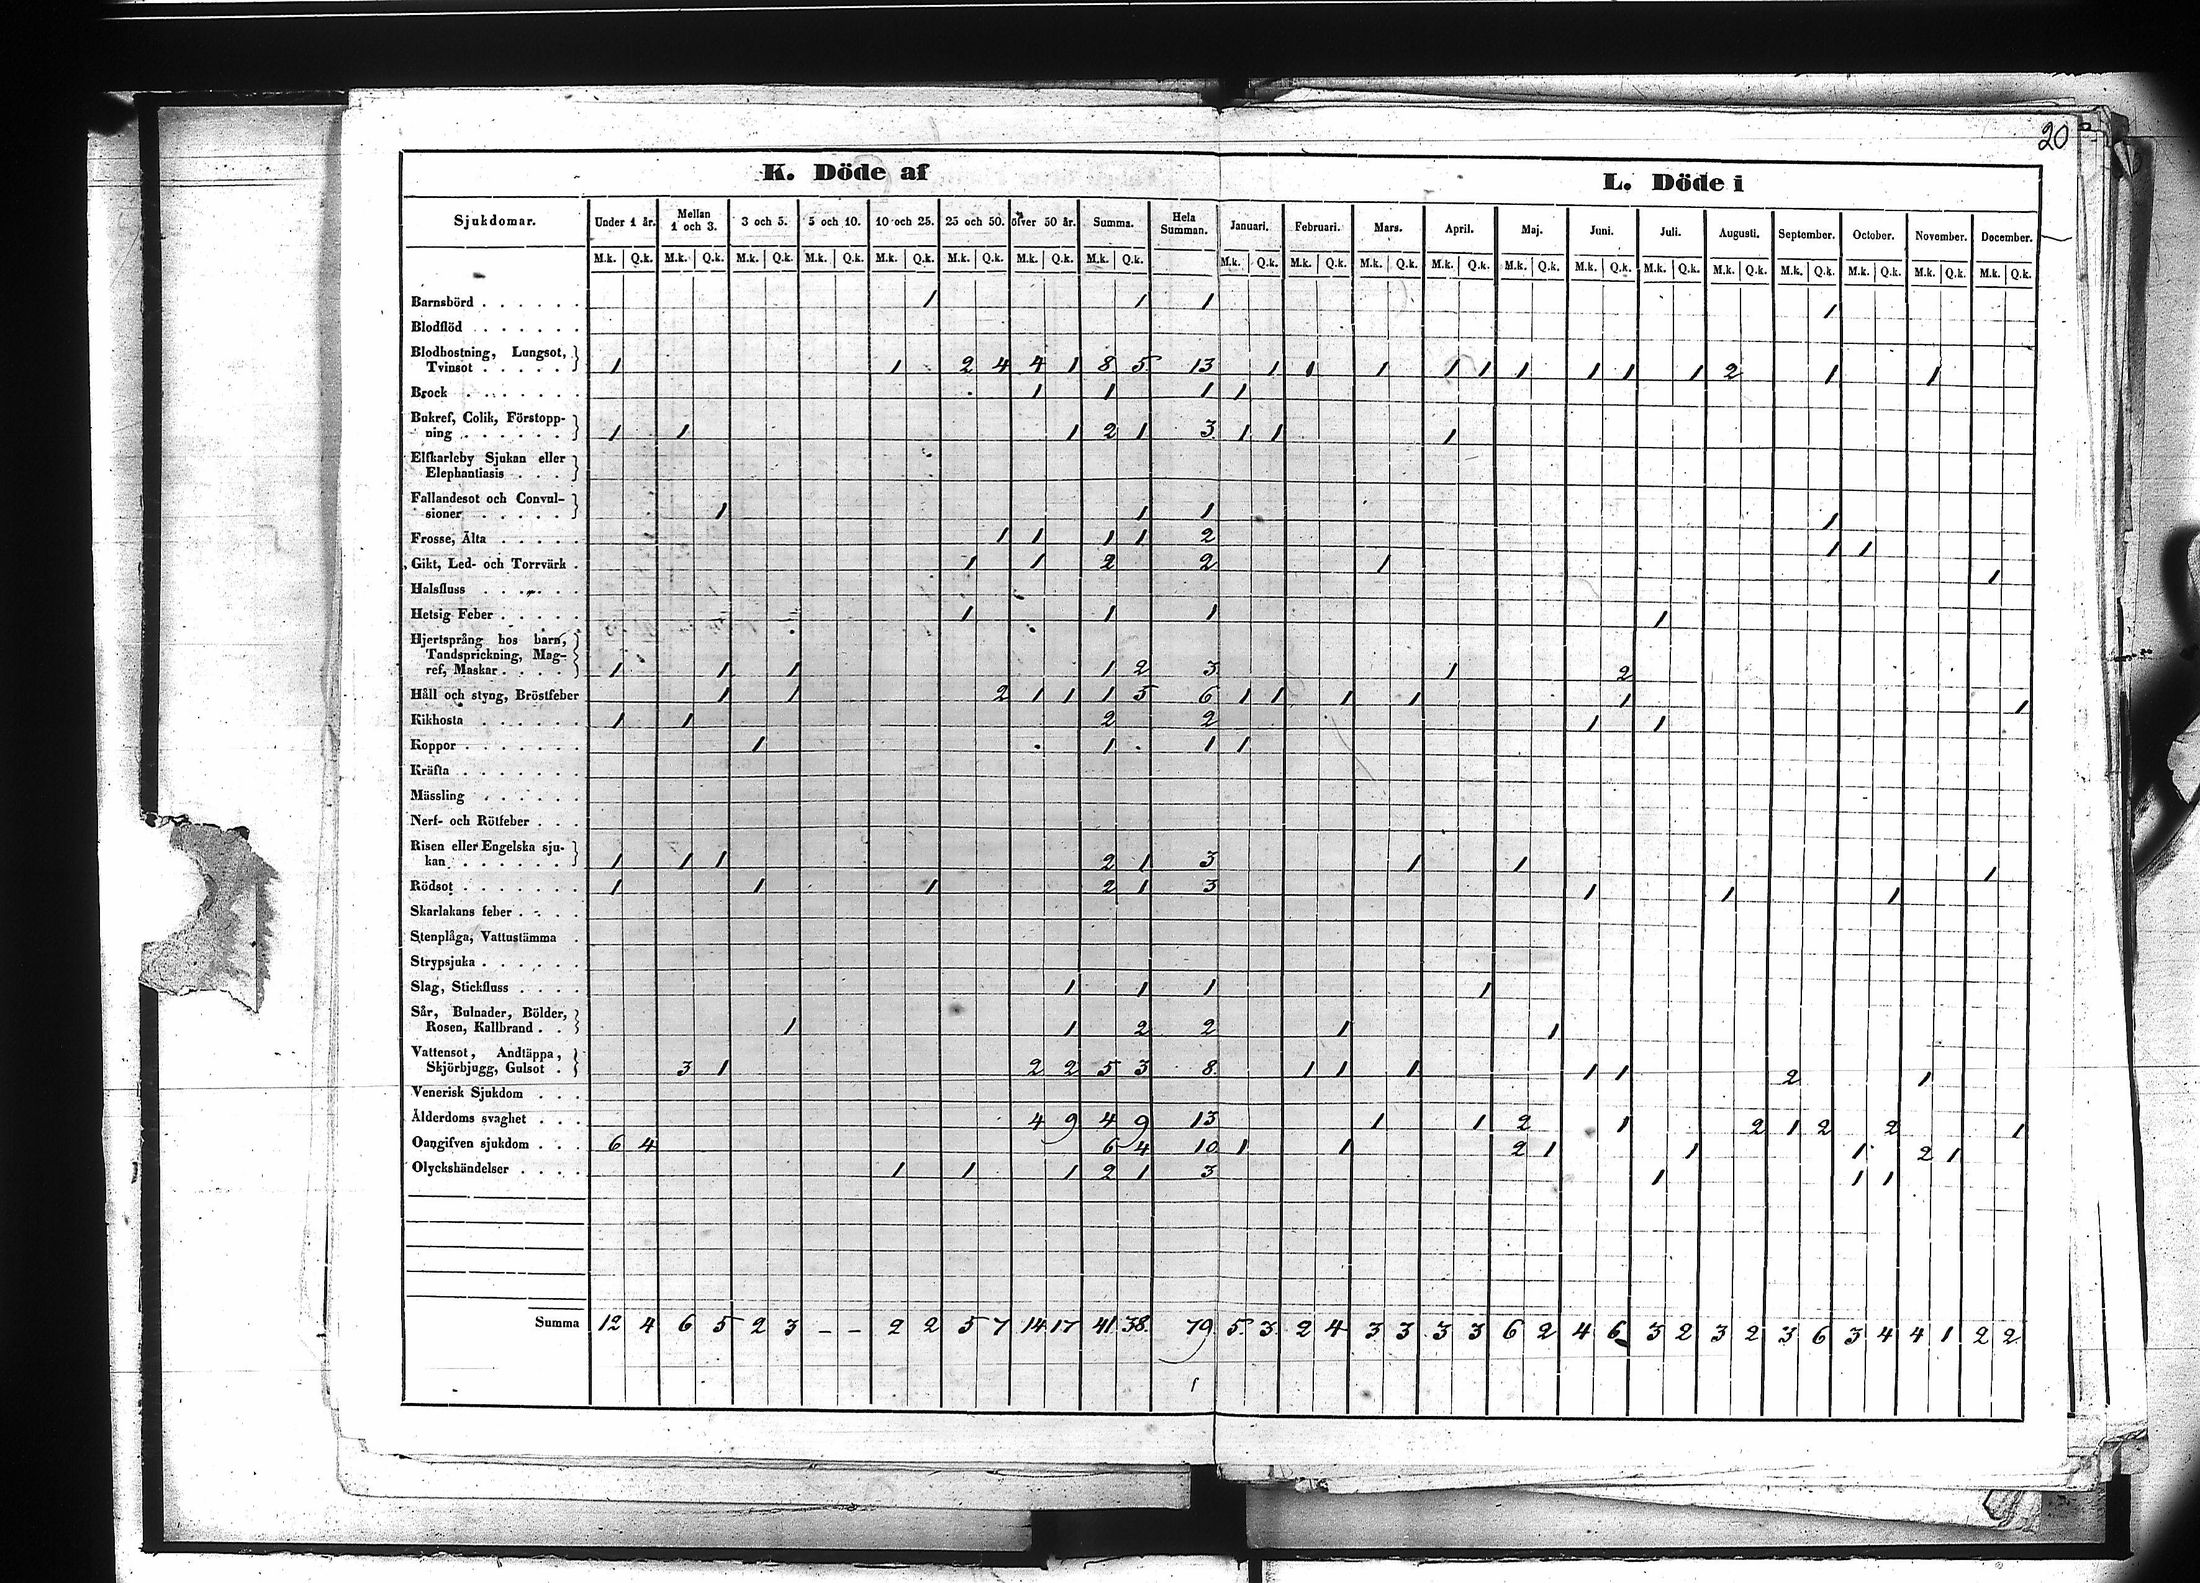 20
K. Döde af L. Döde i
Sjukdomar. Under 1 år. Mellan 1 och 3. 3 och 5. 5 och 10. 10 och 25. 25 och 50. öfver 50 år. Summa. Hela Summan. Januari. Februari. Mars. April. Maj. Juni. Juli. Augusti. September. October. November. December.
M.k. Q.k. M.k. Q.k. M.k. Q.k. M.k. Q.k. M.k. Q.k. M.k. Q.k. M.k. Q.k. M.k. Q.k. M.k. Q.k. M.k. Q.k. M.k. Q.k. M.k. Q.k. M.k. Q.k. M.k. Q.k. M.k. Q.k. M.k. Q.k. M.k. Q.k. M.k. Q.k. M.k. Q.k. M.k. Q.k.
Barnsbörd . . . . . . 1 1 1 1
Blodflöd . . . . . .
Blodhostning, Lungsot,
Tvinsot . . . . . 1 1 2 4 4 1 8 5 13 1 1 1 1 1 1 1 1 1 2 1 1
Brock . . . . . . . 1 1 1 1
Bukref, Colik, Förstopp-
ning . . . . . . 1 1 1 2 1 3 1 1 1
Elfkarleby Sjukan eller
Elephantiasis . . . .
Fallandesot och Convul-
sioner . . . . . 1 1 1 1
Frosse, Älta . . . . . 1 1 1 1 2 1 1
Gikt, Led- och Torrvärk . 1 1 2 2 1 1
Halsfluss . . . . . .
Hetsig Feber . . . . . 1 1 1 1
Hjertsprång hos barn,
Tandsprickning, Mag-
ref, Maskar . . . . 1 1 1 1 2 3 1 2
Håll och styng, Bröstfeber 1 1 2 1 1 1 5 6 1 1 1 1 1 1
Kikhosta . . . . . . 1 1 2 2 1 1
Koppor . . . . . . . 1 1 1 1
Kräfta . . . . . . .
Mässling . . . . . .
Nerf- och Rötfeber . . .
Risen eller Engelska sju-
kan . . . . . . 1 1 1 2 1 3 1 1 1
Rödsot . . . . . . . 1 1 1 2 1 3 1 1 1
Skarlakans feber . . . .
Stenplåga, Vattustämma .
Strypsjuka . . . . . .
Slag, Stickfluss . . . . 1 1 1 1
Sår, Bulnader, Bölder,
Rosen, Kallbrand . . 1 1 2 2 1 1
Vattensot, Andtäppa,
Skjörbjugg, Gulsot . 3 1 2 2 5 3 8 1 1 1 1 1 2 1
Venerisk Sjukdom . . .
Ålderdoms svaghet . . . 4 9 4 9 13 1 1 2 1 2 1 2 2 1
Oangifven sjukdom . . . 6 4 6 4 10 1 1 2 1 1 1 2 1
Olyckshändelser . . . . 1 1 1 2 1 3 1 1 1
Summa 12 4 6 5 2 3 – – 2 2 5 7 14 17 41 38 79 5 3 2 4 3 3 3 3 6 2 4 6 3 2 3 2 3 6 3 4 4 1 2 2